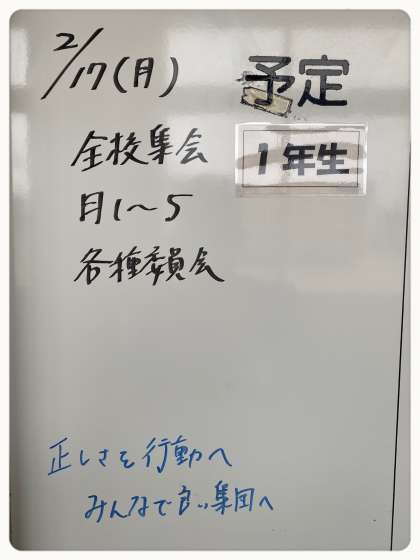 2/17(月)
予定
1年生
全校集会
月1〜5
各種委員会
正しさを行動へ
みんなで良い集団へ